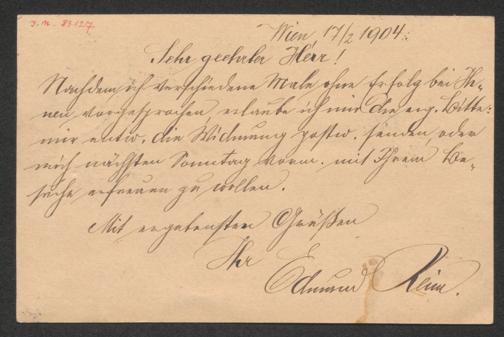 I. N. 83127
Wien, 17/2 1904.
Sehr geehrter Herr!
Nachdem ich verschiedene Male ohne Erfolg bei Ih-
nen vorgesprochen erlaube ich mir die erg. Bitte
mir entw. die Widmung postw. senden, oder
mich nächsten Sonntag vorm. mit Ihrem Be-
suche erfreuen zu wollen.
Mit ergebensten Grüßen
Ihr
Edmund Reim.